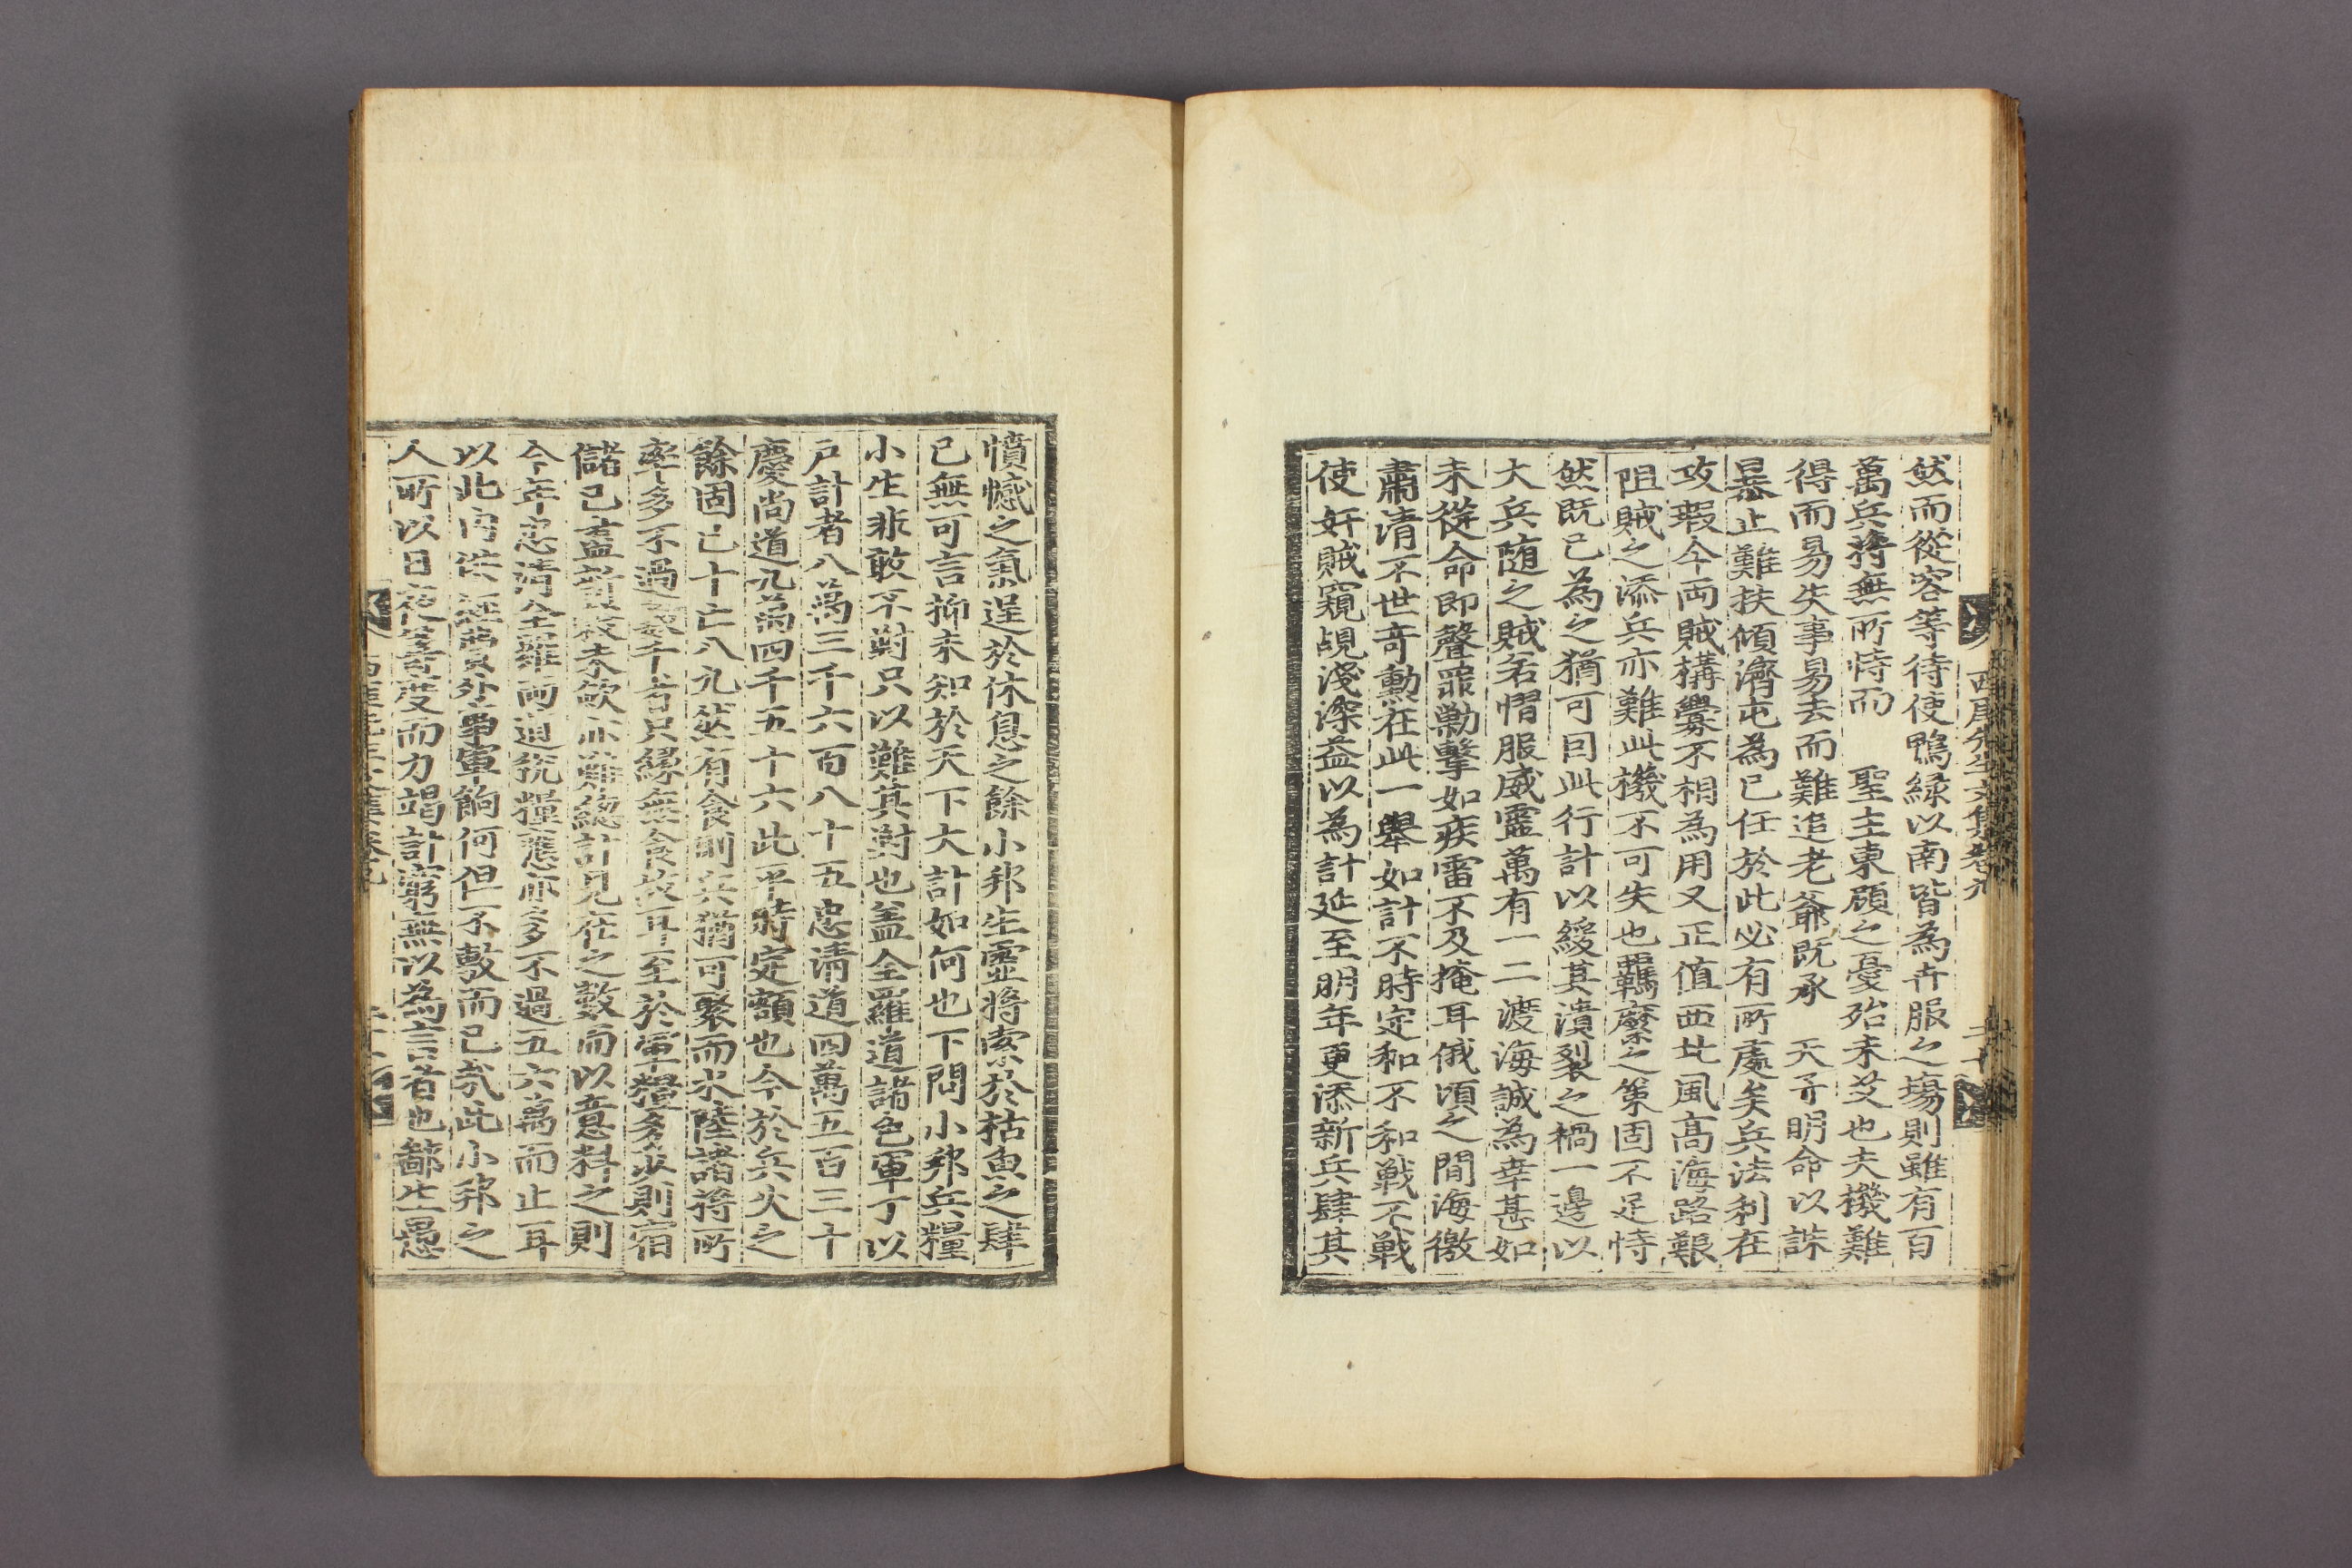 然而從容等待使鴨緑以南皆為卉服之塲則雖有百
萬兵將無所恃而 聖主東顧之憂殆未艾也夫機難
得而易失事易去而難追老爺既承 天子明命以誅
暴止難扶傾濟屯為己任於此必有所處矣兵法利在
攻瑕今両賊構釁不相為用又正值西北風高海路艱
阻賊之添兵亦難此機不可失也羈縻之策固不足恃
然既已為之猶可因此行計以緩其潰裂之禍一邊以
大兵随之賊若慴服威靈萬有一二渡海誠為幸甚如
未從命即聲罪勦擊如疾雷不及掩耳俄頃之間海徼
肅清不世奇勳在此一舉如計不時定和不和戰不戰
使奸賊窺覘淺深益以為計延至明年更添新兵肆其
憤憾之氣逞於休息之餘小邦生靈將索於枯魚之肆
已無可言抑未知於天下大計如何也下問小邦兵糧
小生非敢不對只以難其對也盖全羅道諸色軍丁以
戶計者八萬三千六百八十五忠清道四萬五百三十
慶尚道九萬四千五十六此平時定額也今於兵火之
餘固已十亡八九然有食則兵猶可聚而水陸諸將所
率多不過數千者只緣無食故耳至於軍糧多少則宿
儲已盡新穀未斂亦難總計見在之數而以意料之則
今年忠清全羅両道稅糧應亦多不過五六萬而止耳
以此内供經費外贍軍餉何但不敷而已哉此小邦之
人所以日夜籌度而力竭計窮無以為言者也鄙生愚
西厓先生文集卷九